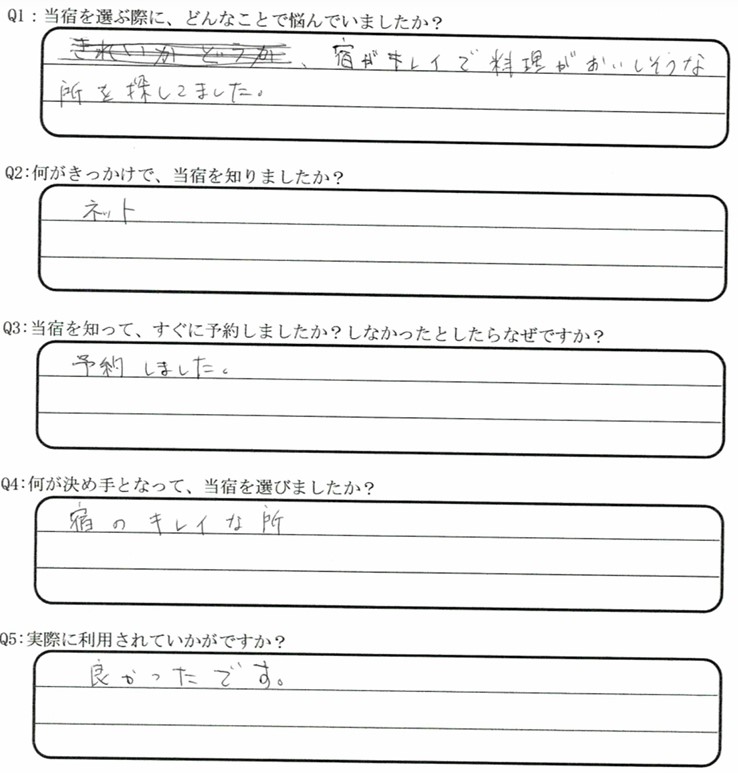 Q1：当宿を選ぶ際に、どんなことで悩んでいましたか？
きれいかどうか、宿がキレイで料理がおいしそうな
所を探してました。
Q2:何がきっかけで、当宿を知りましたか？
ネット
Q3:当宿を知って、すぐに予約しましたか？しなかったとしたらなぜですか？
予約しました。
Q4:何が決め手となって、当宿を選びましたか？
宿のキレイな所
Q5:実際に利用されていかがですか？
良かったです。